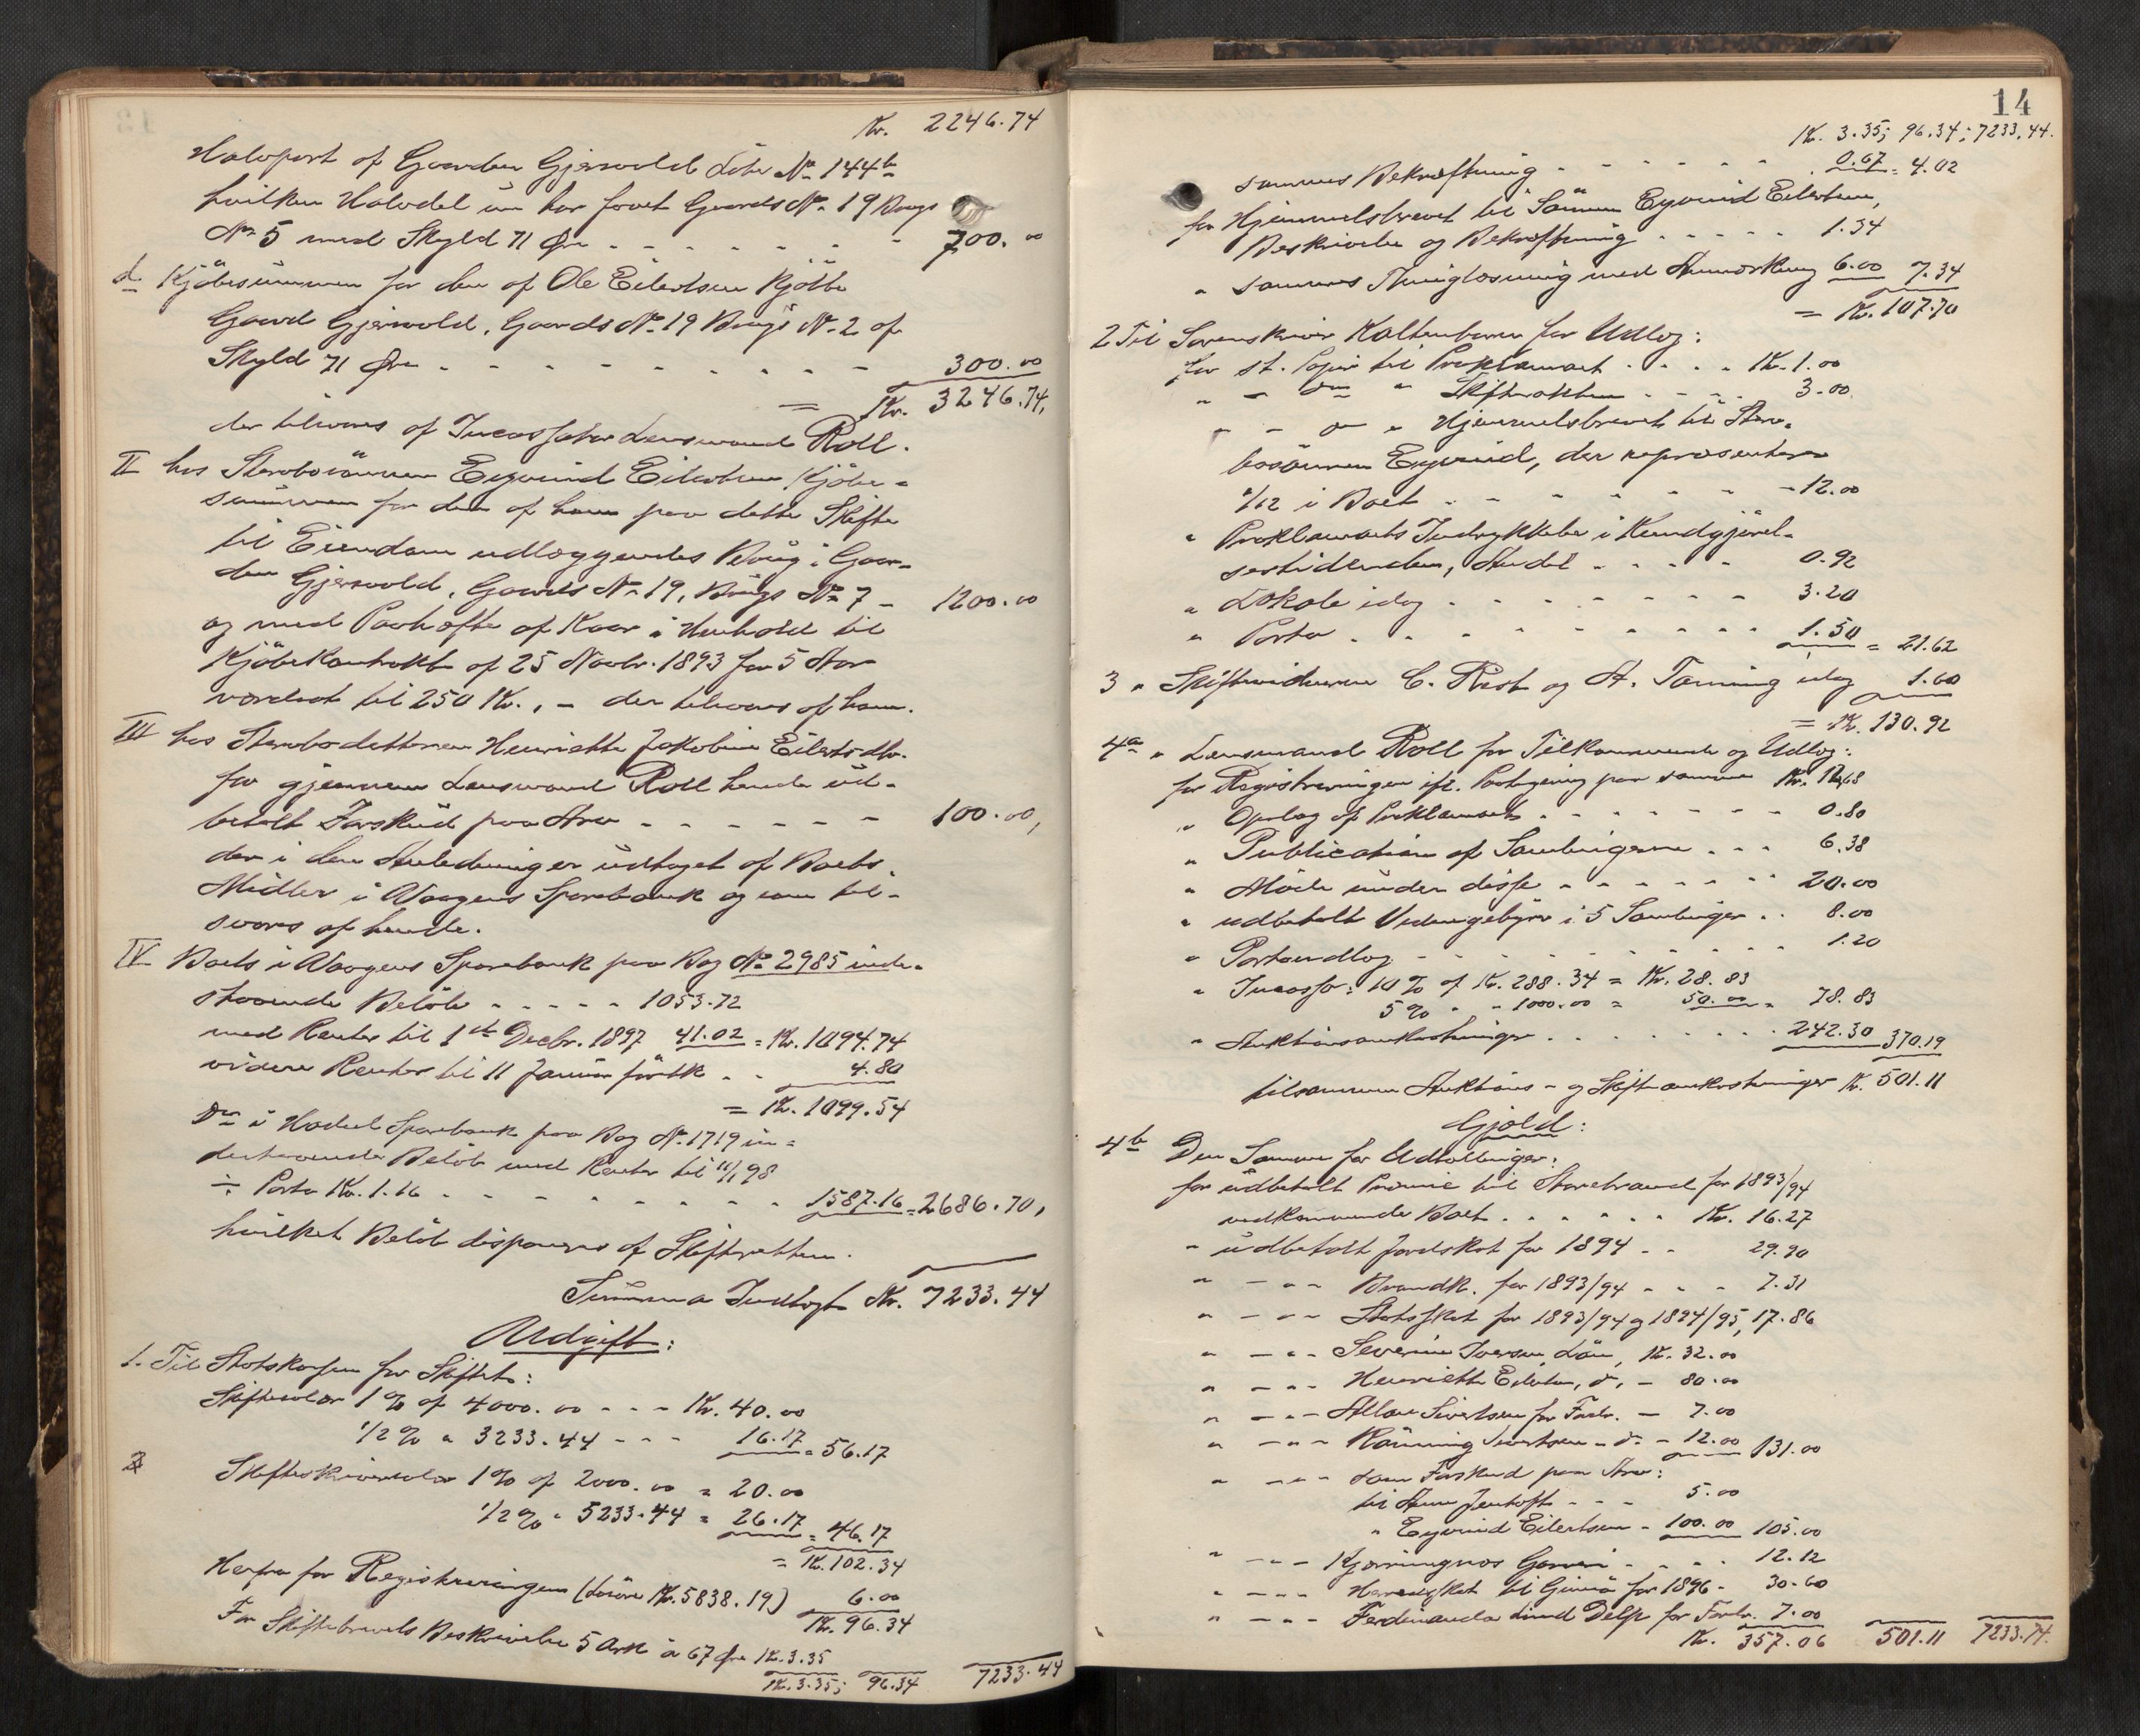 Kr. 2246.74
Halvpart af Gaarden Gjersvold Löbe No 144b
hvilken Halvdel nu har faaet Gaards No 19 Brugs
No 5 med Skyld 71 Øre - - - - - - - 700.00
d. Kjöbesummen for den af Ole Eilertsen kjöbte
Gaard Gjersvold, Gaards No 19 Brugs No 2 af
Skyld 71 Øre - - - - - - - - - 300.00
= Kr. 3246.74,
der tilsvares af Incassator Lensmand Roll.
II hos Stervbosönnen Eyvind Eilertsen Kjöbe-
summen for den af ham paa dette Skifte
til Eiendom udlæggendes Brug i Gaar-
den Gjersvold, Gaards No 19, Brugs No 7 - 1200.00
og med Paahefte af Kaar i Henhold til
Kjöbekontrakt af 25 Novbr. 1893 for 5 Aar
værdsat til 250 Kr., - der tilsvares af ham.
III hos Stervbodatteren Henriette Jakobine Eilertsdtr.
for gjennem Lensmand Roll hende ud-
betalt Forskud paa Arv - - - - - - 100.00,
der i den Anledning er udtaget af Boets
Midler i Vaagens Sparebank og som til-
svares af hende.
IV Boets i Vaagens Sparebank paa Bog No 2985 inde-
staaende Beløb - - - - - 1053.72
med Renter til 1ste Decbr. 1897 41.02 = Kr. 1094.74
videre Renter til 11 Januar förstk - - 4.80
= Kr. 1099.54
Do i Hadsel Sparebank paa Bog No. 1719 in-
destaaende Beløb med Renter til 11/1 98
÷ Porto Kr. 1.16 - - - - - - - - - 1587.16 = 2686.70,
hvilket Beløb disponeres af Skifteretten.
Summa Indtægt Kr. 7233.44
Udgift:
1. Til Statskassen for Skiftet:
Skiftesalær 1 % af 4000.00 - - - Kr. 40.00
1/2 % " 3233.44 - - - 16.17 = 56.17
Skifteskriversalær 1 % af 2000.00 = 20.00
1/2 % " 5233.44 = 26.17 = 46.17
= Kr. 102.34
Herfra for Registreringen (Lösöre Kr. 5838.19) 6.00
Kr. 96.34
For Skiftebrevets Beskrivelse 5 Ark à 67 Øre Kr. 3.35
Kr. 3.35; 96.34 7233.44
14
Kr. 3.35; 96.34; 7233.44.
sammes Bekræftning - - - - - - 0.67 = 4.02
for Hjemmelsbrevet til Sönnen Eyvind Eilertsen,
Beskrivelse og Bekræftning - - - - - 1.34
" sammes Thinglæsning med Anmærkning 6.00 7.34
= Kr. 107.70
2 Til Sorenskriver Kaltenborn for Udlæg:
for st. Papir til Proklamaet - - - - Kr. 1.00
" - do " Skifteakten - - - - 3.00
" - do " Hjemmelsbrevet til Sterv-
bosönnen Eyvind, der repræsenterer
1/12 i Boet - - - - - - - - 12.00
" Proklamaets Indrykkelse i Kundgjörel-
sestidenden, Andel - - - - 0.92
" Lokale idag - - - - - - - - 3.20
" Porto - - - - - - - - - 1.50 = 21.62
3 " Skiftevidnerne C. Rist og A. Tanning idag 1.60
= Kr. 130.92
4a " Lensmand Roll for Tilkommende og Udlæg:
for Registreringen ifl. Paategning paa samme Kr. 12.68
" Opslag af Proklamaet - - - - - - - 0.80
" Publication af Samlingerne - - - 6.38
" Möde under disse - - - - - - - 20.00
" udbetalt Vidnegebyr i 5 Samlinger - - 8.00
" Portoudlæg - - - - - - - - - 1.20
" Incasso: 10 % af Kr. 288.34 = Kr. 28.83
5 % - - 1000.00 = 50.00 = 78.83
" Auktionsomkostninger - - - - - - - 242.30 370.19
tilsammen Auktions- og Skifteomkostninger Kr. 501.11
Gjæld:
4b Den Samme for Udtællinger:
for udbetalt Præmie til Storebrand for 1893/94
vedkommende Boet - - - - - - Kr. 16.27
" udbetalt Jordskat for 1894 - - 29.90
" - - - Brandk. for 1893/94 - - - 7.31
" - - - Statsskat for 1893/94 og 1894/95, 17.86
" - - - Severine Iversen, Lön, Kr. 32.00
" - - - Henriette Eilertsen, do, - 80.00
" - - - Sivertsen for Fordr. - 7.00
" - - - Rönning Sivertsen - do - 12.00 131.00
" - - - som Forskud paa Arv:
til Anne Jentoft - - - 5.00
" Eyvind Eilertsen - 100.00 105.00
" - - - Kjerringnæs Garveri - - - - 12.12
" - - - Herredsskat til Gimsö for 1896 - 30.60
" - - - Ferdinanda Delp for Fordr. 7.00
Kr. 357.06 501.11 7233.74.